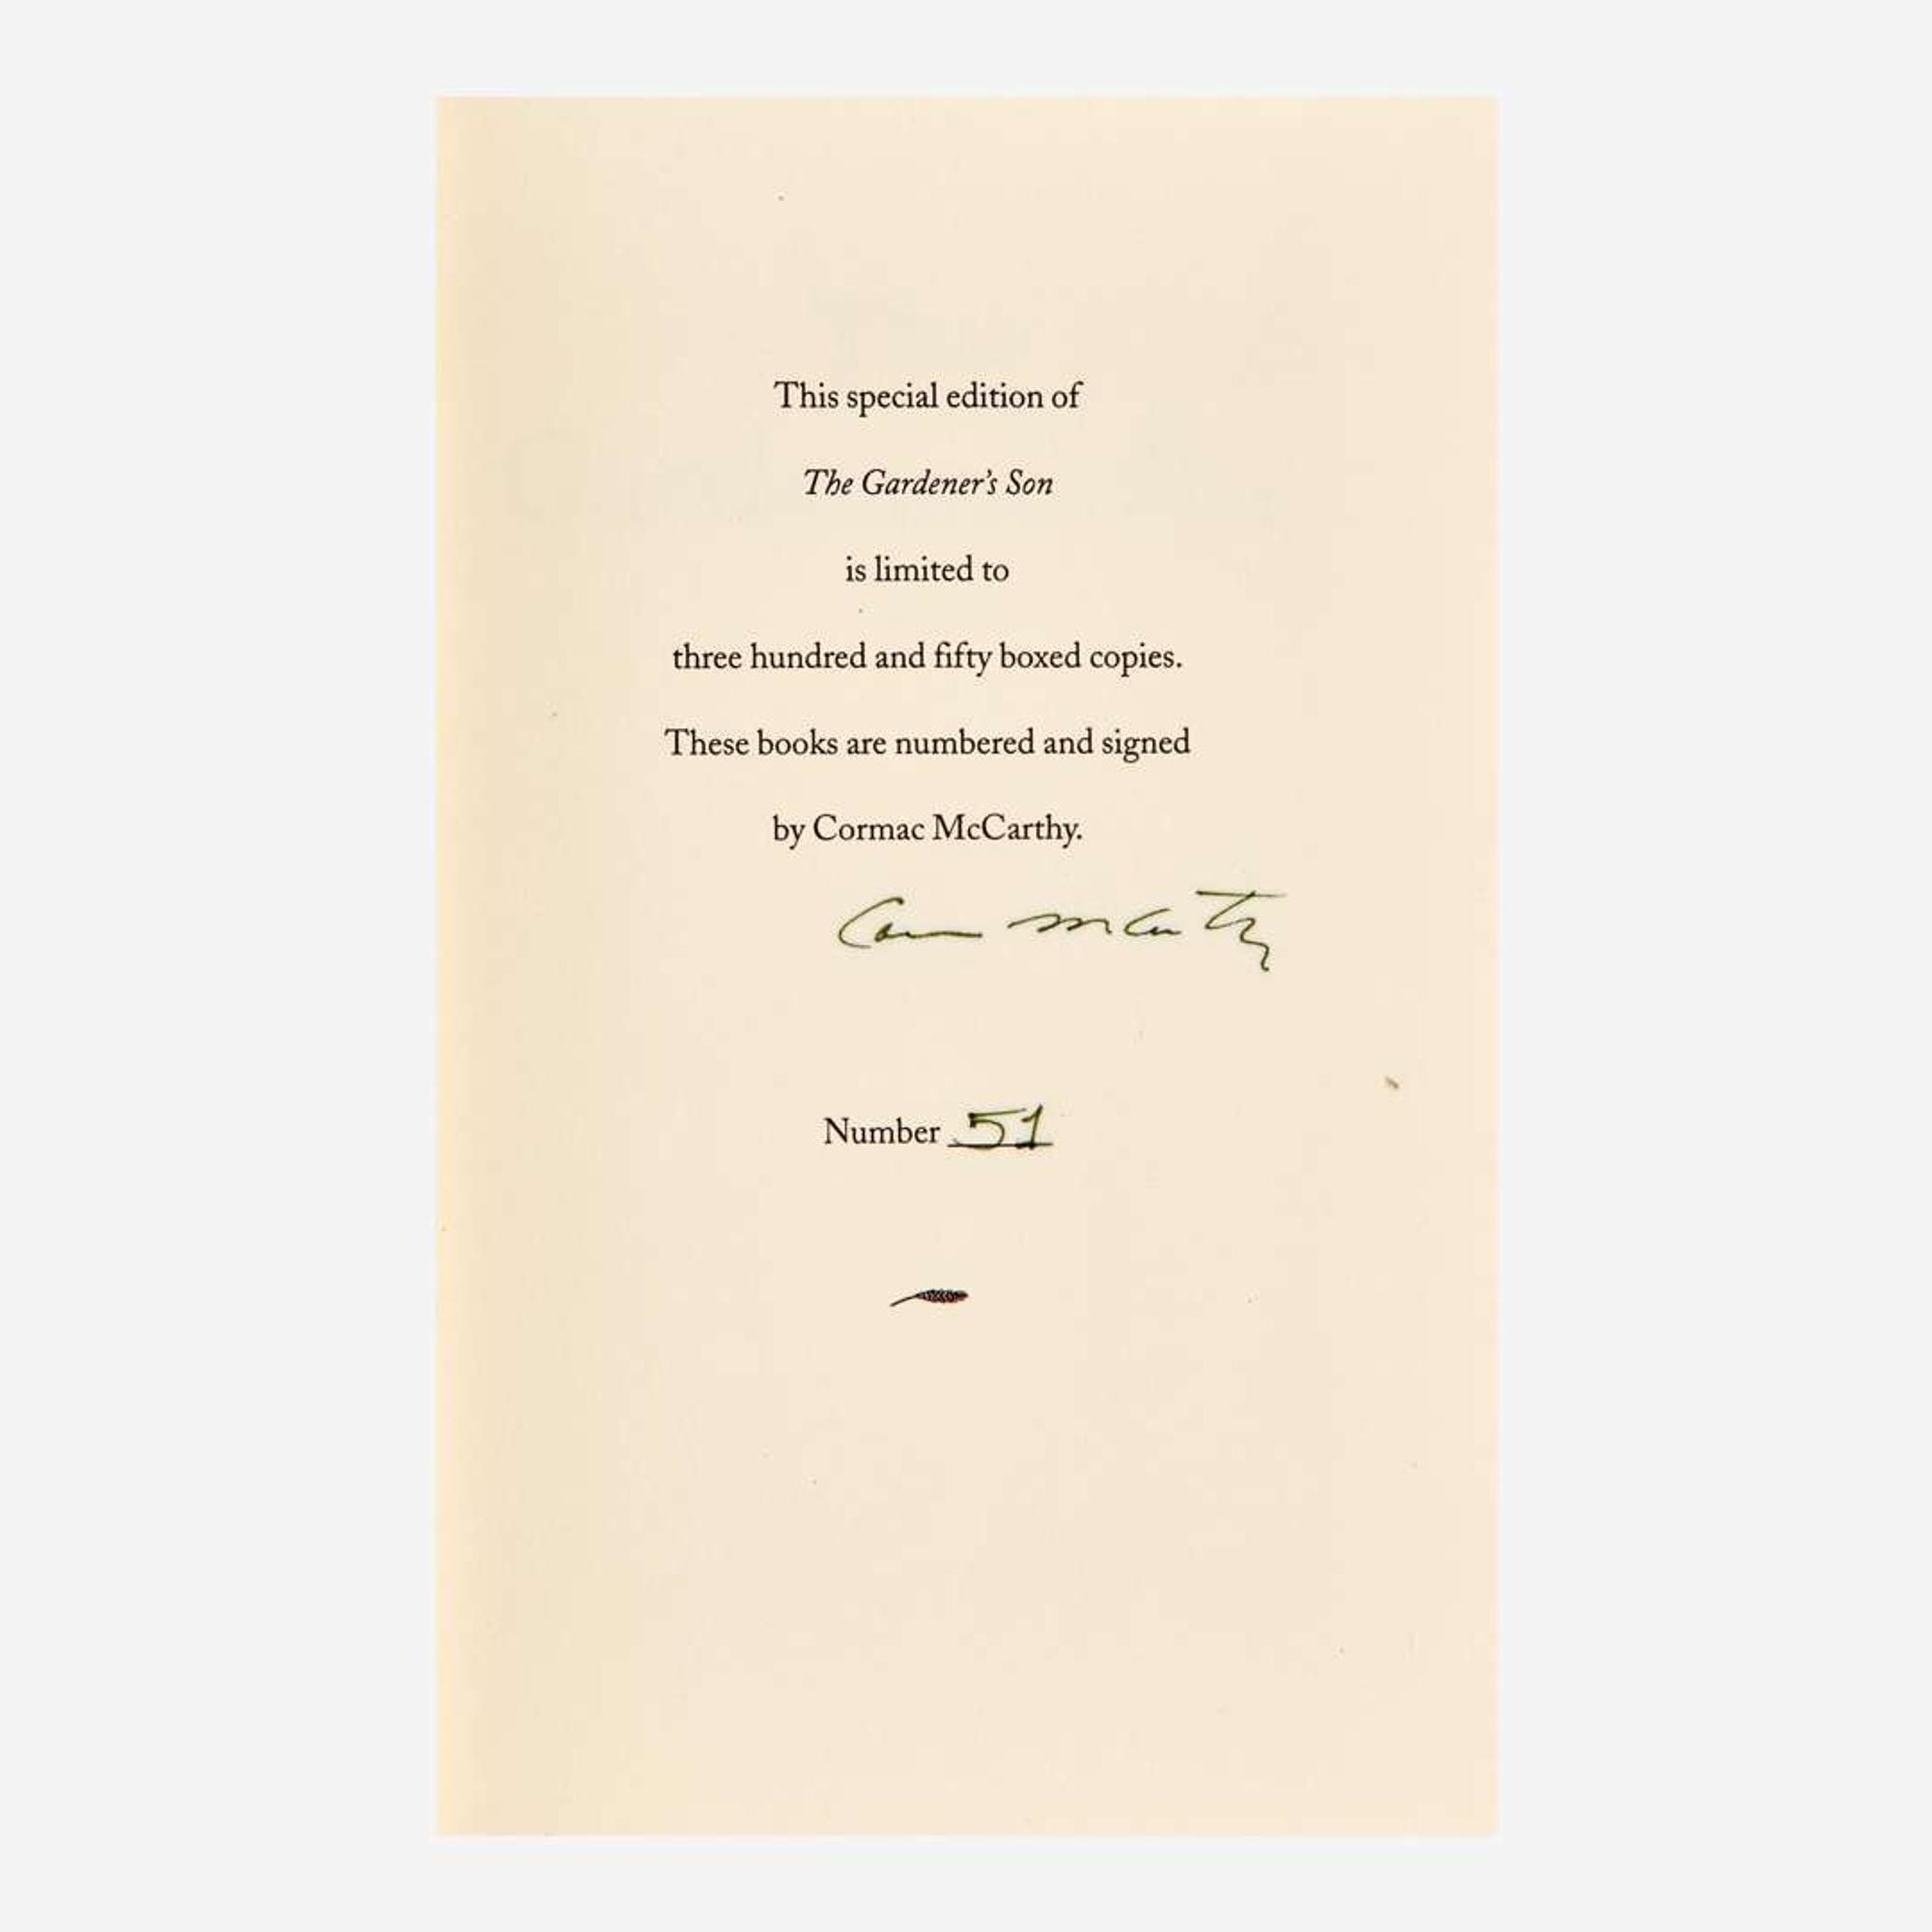 This special edition of
The Gardener's Son
is limited to
three hundred and fifty boxed copies.
These books are numbered and signed
by Cormac McCarthy.
Cormac McCarthy
Number 51